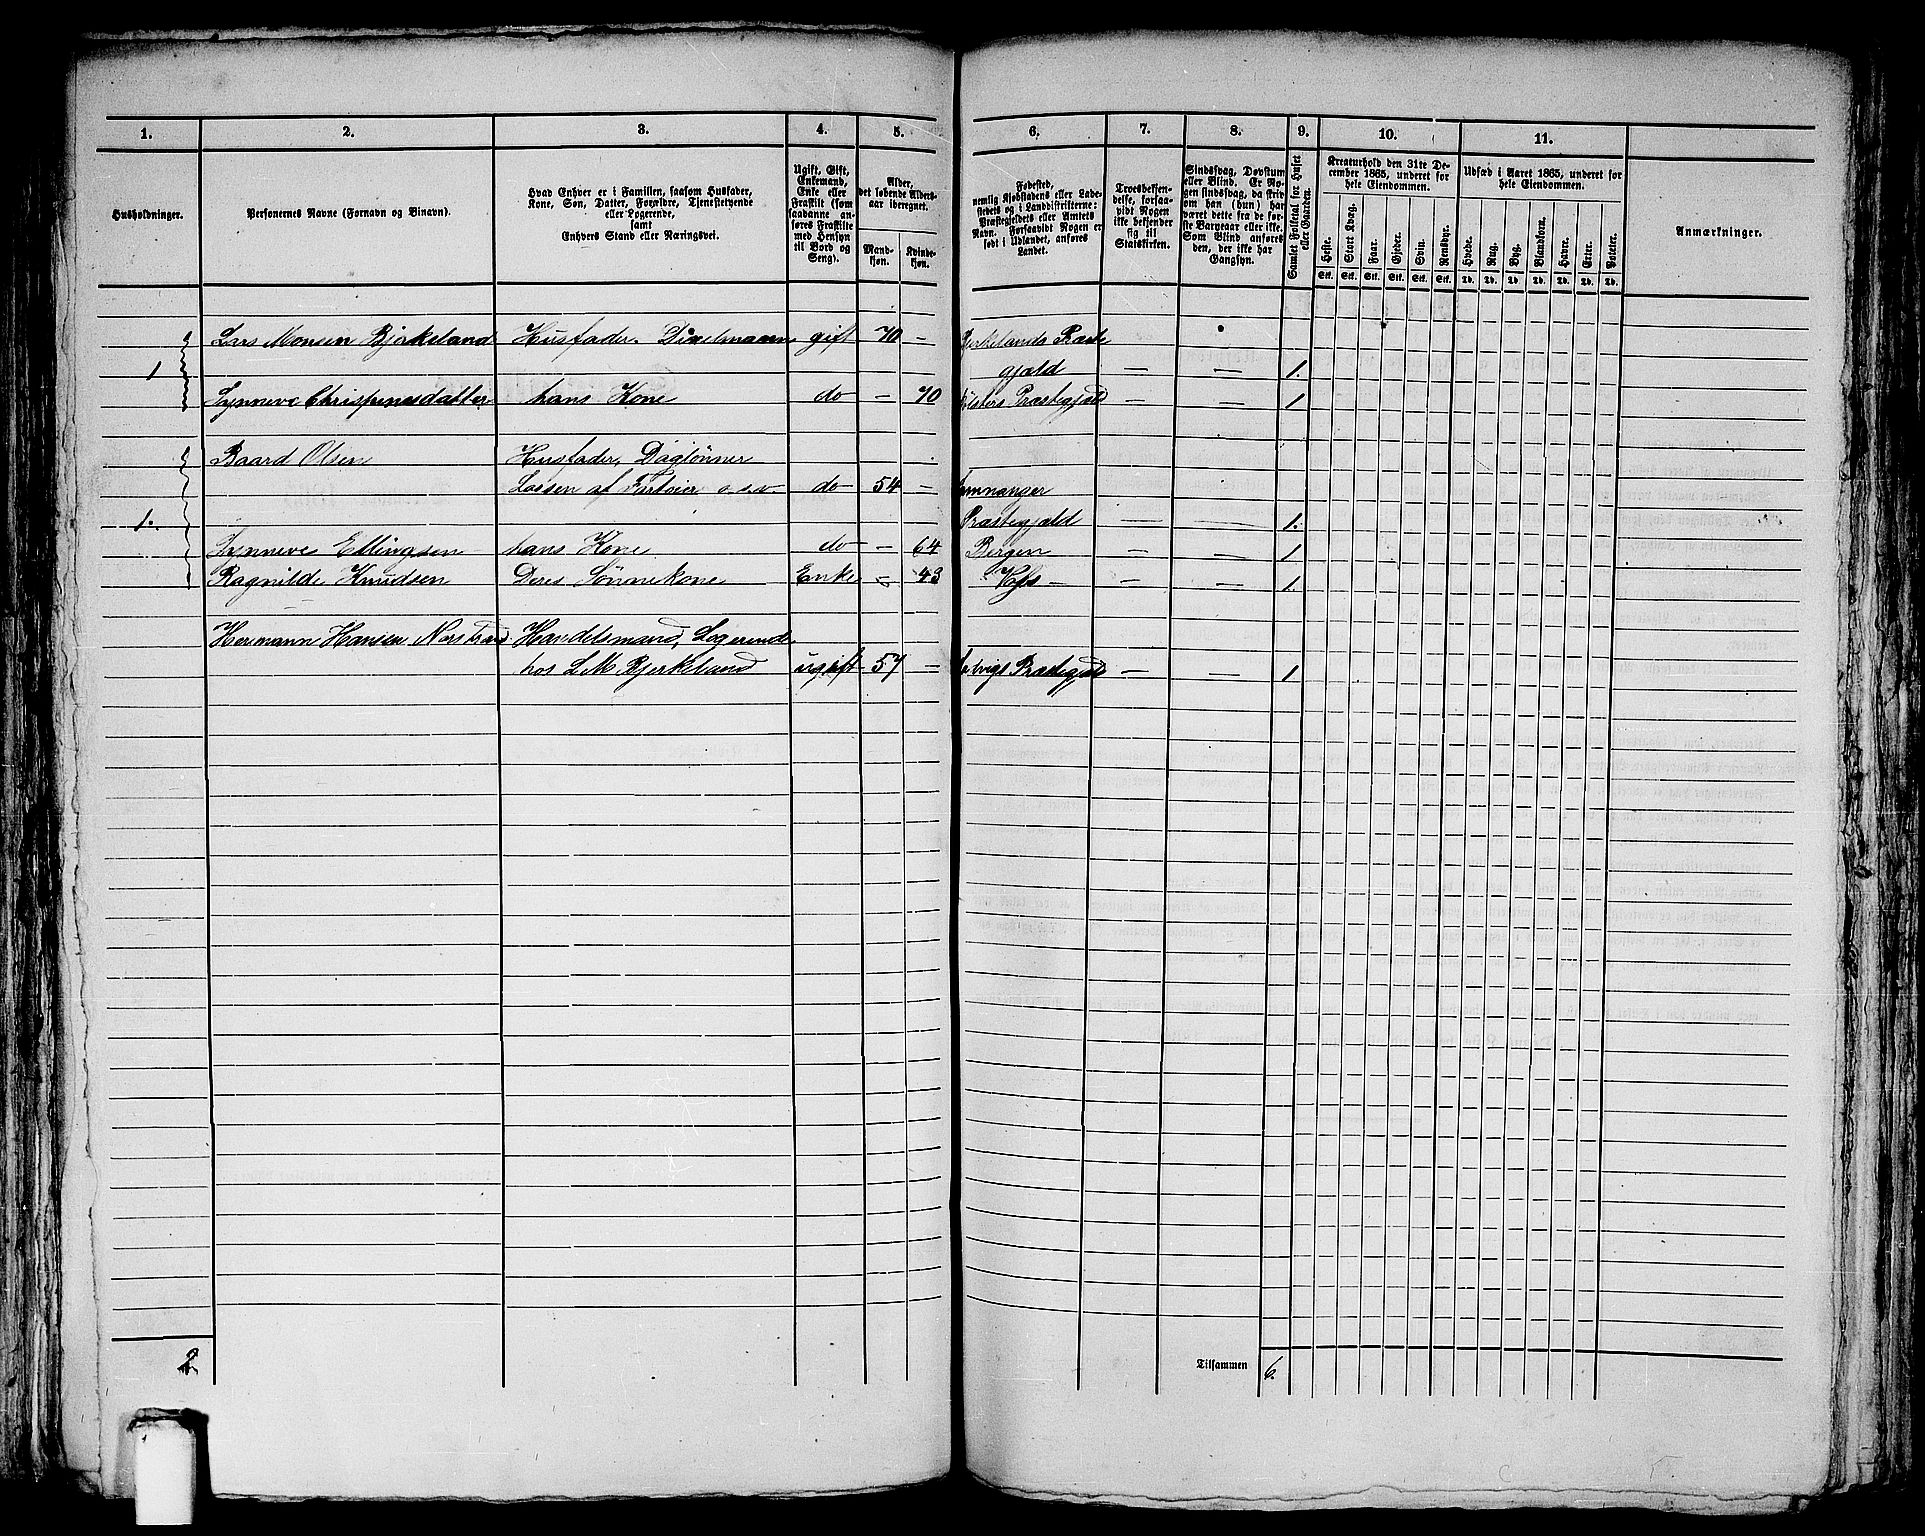 1. 2. 3. 4. 5. 6. 7. 8. 9. 10. 11.
Husholdninger.
Personernes Navne (Fornavn og Binavn).
Hvad Enhver er i Familien, saasom Husfader,
Kone, Søn, Datter, Forældre, Tjenestetyende
eller Logerende,
samt
Enhvers Stand eller Næringsvei.
Ugift, Gift,
Enkemand,
Enke eller
Fraskilt (som
saadanne an-
føres Fraskilte
med Hensyn
til Bord og
Seng).
Alder,
det løbende Alders-
aar iberegnet.
Mand-
kjøn.
Kvinde-
kjøn.
Fødested,
nemlig Kjøbstadens eller Lade-
stedets og i Landdistrikterne:
Præstegjeldets eller Amtets
Navn. Forsaavidt Nogen er
født i Udlandet, anføres
Landet.
Troesbekjen-
delse, forsaa-
vidt Nogen
ikke bekjender
sig til
Statskirken.
Sindssvag, Døvstum
eller Blind. Er No-
gen sindssvag, da skrives
om han (hun) har
været dette fra de før-
ste Barneaar eller ei.
Som Blind anføres
den, der ikke har
Gangsyn.
Samlet Folketal for Huset
eller Gaarden.
Kreaturhold den 31te De-
cember 1865, underet for
hele Eiendommen.
Heste. Stort Kvæg. Faar. Gjeder. Svin. Rensdyr.
Stk. Stk. Stk. Stk. Stk. Stk.
Udsæd i Aaret 1865, underet for
hele Eiendommen.
Hvede. Rug. Byg. Blandkorn. Havre. Erter. Poteter.
Td. Td. Td. Td. Td. Td. Td.
Anmærkninger.
Lars Monsen Bjökeland Husfader. gift 70 —
1 gjæld — — 1.
Synneve Chrispinesdatter hans Kone do — 70 Præstegjæld — — 1
Baard Olsen Husfader, Daglønner
Lossen af Fartøier o.s.v. do 54 —
1. Præstegjæld — — 1.
Synneve Ellingsen hans Kone do — 64 Bergen — — 1
Ragnilde Knudsen Deres Sønnekone Enke — 43 — — 1.
Hermann Hansen Handelsmand, Logerende
hos L M Bjerkeland ugift 57 — Præstegjæld — — 1
2 Tilsammen 6.